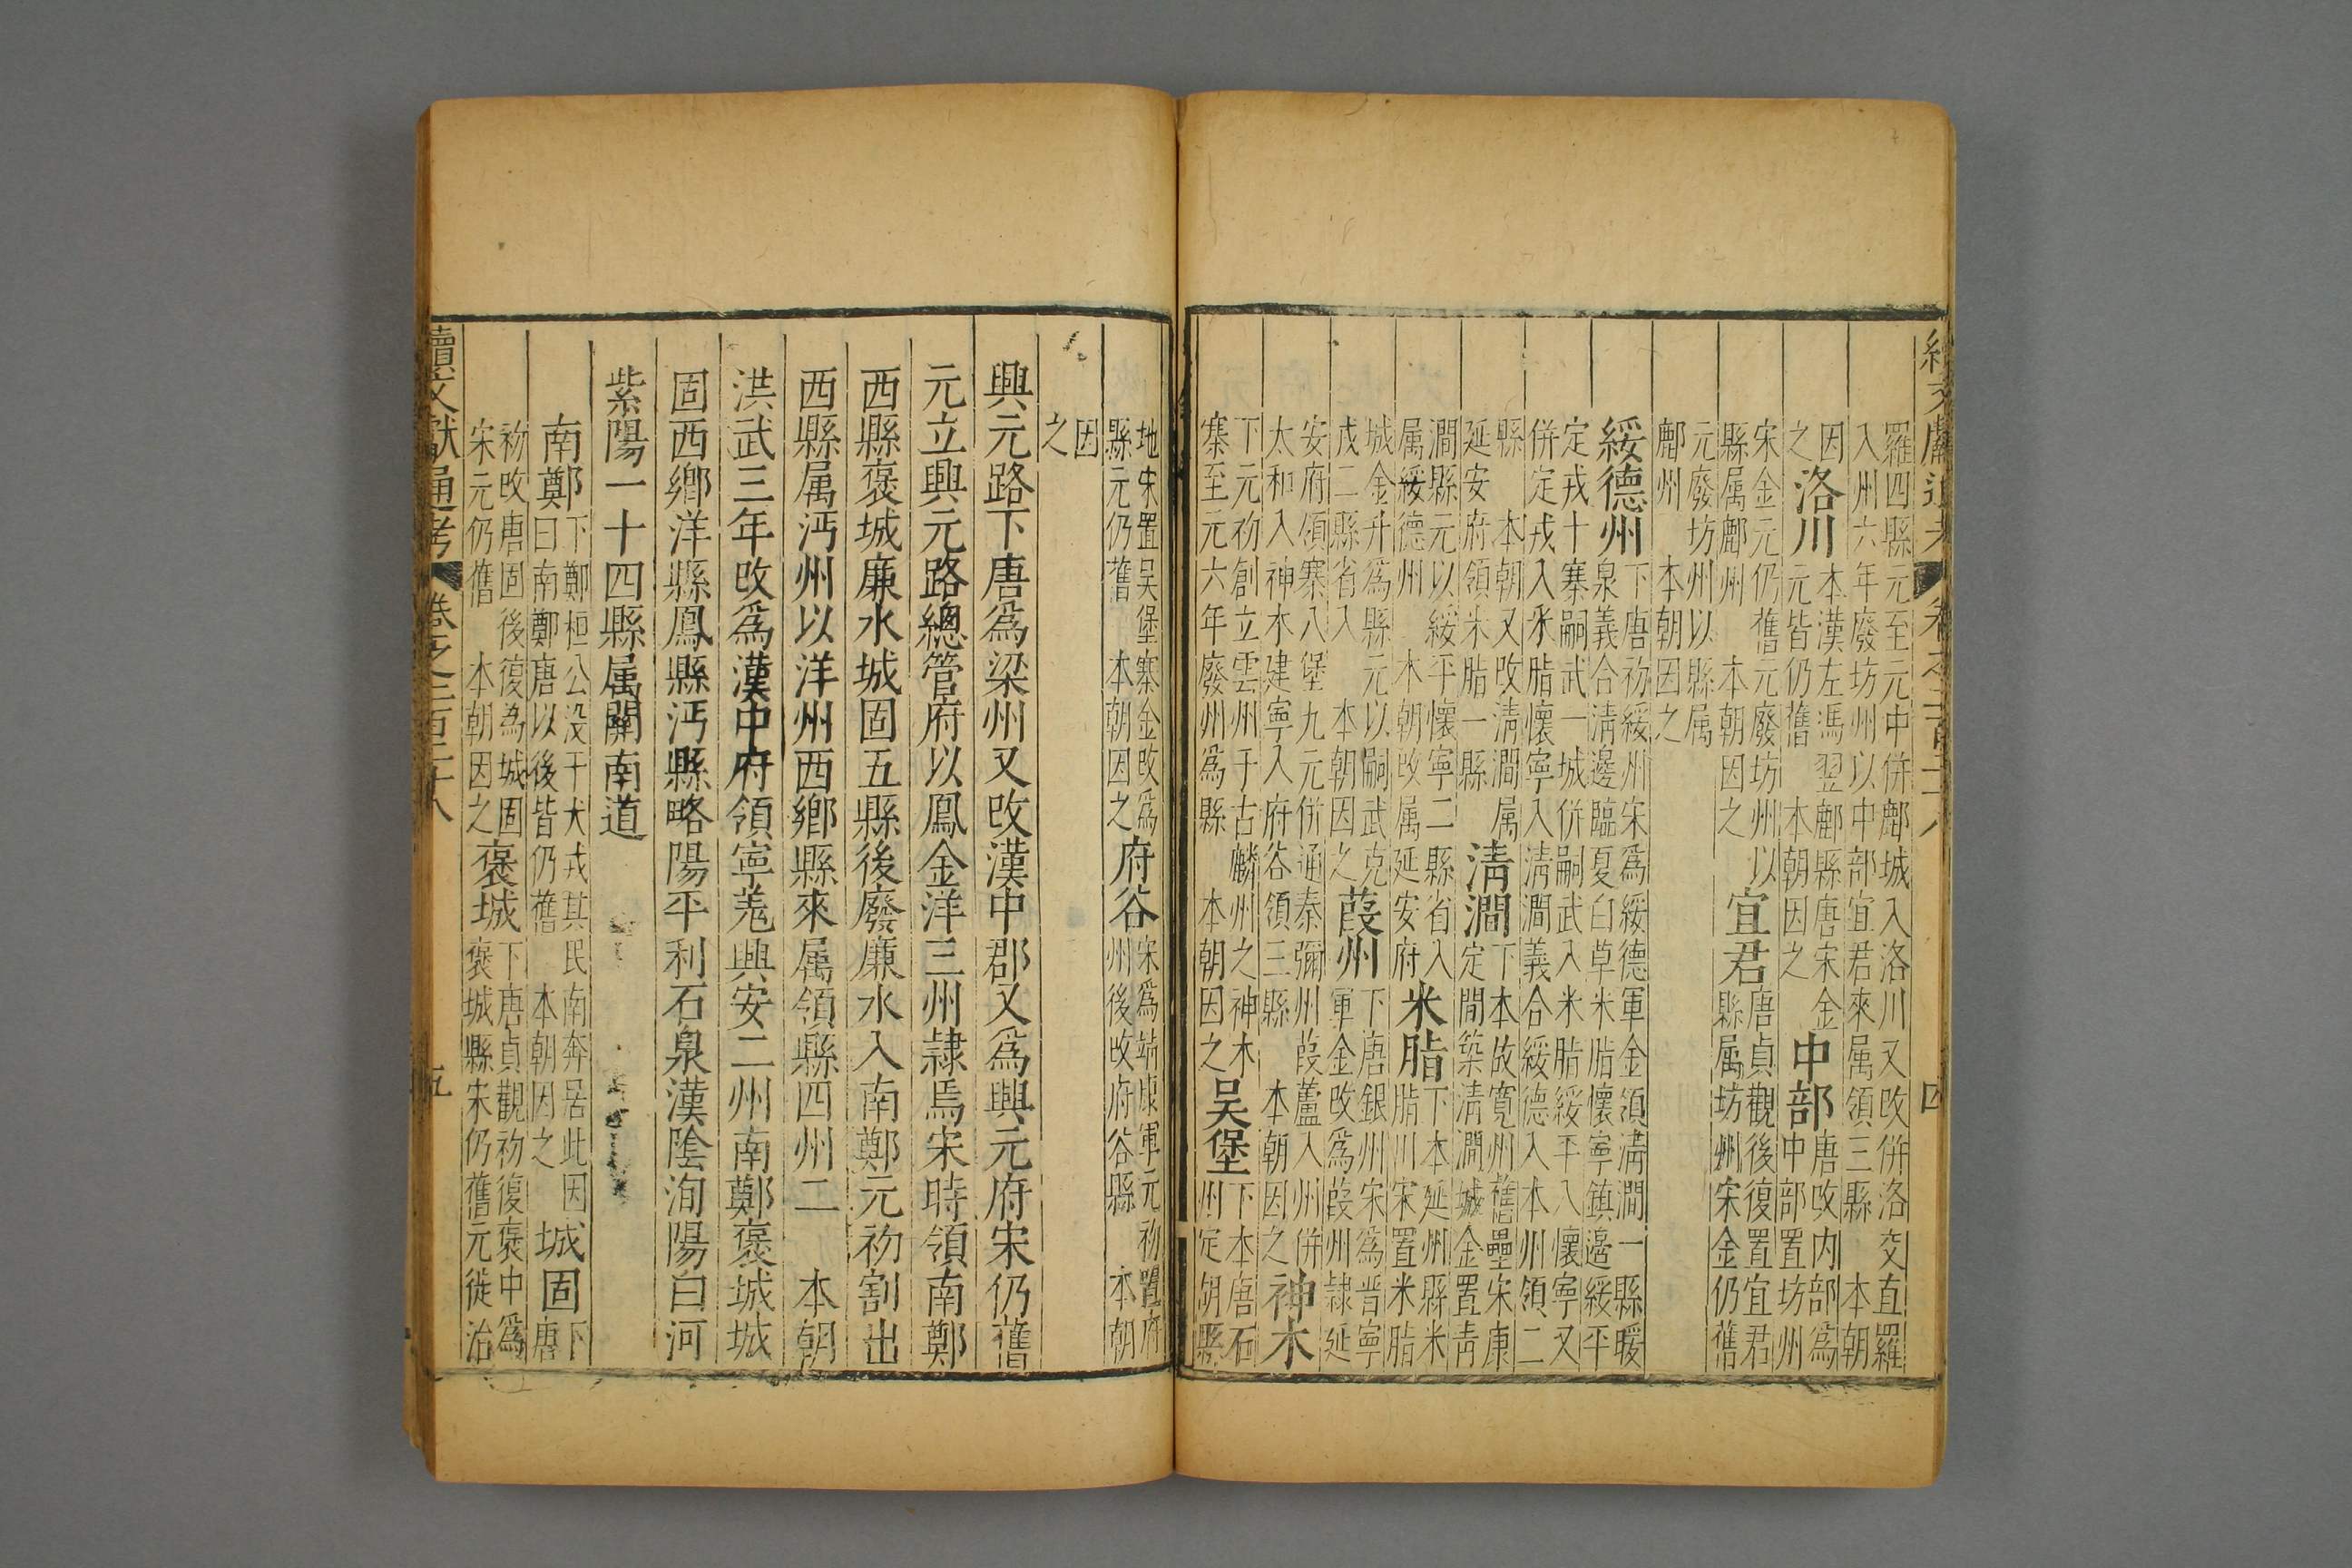 續文獻通考 卷之二百二十八 四
羅四縣元至元中併鄜城入洛川又改併洛交直羅
入州六年廢坊州以中部宜君來属領三縣 本朝
因
之
洛川
本漢左馮翌鄜縣唐宋金
元皆仍舊 本朝因之
中部
唐改内部為
中部置坊州
宋金元仍舊元廢坊州以
縣属鄜州 本朝因之
宜君
唐貞觀後復置宜君
縣属坊州宋金仍舊
元廢坊州以縣属
鄜州 本朝因之
綏德州
下唐初綏州宋為綏德軍金領清澗一縣暖
泉義合清邊臨夏白草米脂懷寧鎮邉綏平
定戎十寨嗣武一城併嗣武入米脂綏平入懷寧又
併定戎入米脂懷寧入清澗義合綏德入本州領二
縣 本朝又改清澗属
延安府領米脂一縣
清澗
下本故寬州舊壘宋康
定間築清澗城金置青
澗縣元以綏平懷寧二縣省入
属綏德州 本朝改属延安府
米脂
下本延州縣米
脂川宋置米脂
城金升為縣元以嗣武克
戎二縣省入 本朝因之
葭州
下唐銀州宋為晋寧
軍金改為葭州隷延
安府領寨八堡九元併通秦彌州葭蘆入州併
太和入神木建寧入府谷領三縣 本朝因之
神木
下元初創立雲州于古麟州之神木
寨至元六年廢州為縣 本朝因之
吴堡
下本唐石
州定胡縣
地宋置吴堡寨金改為
縣元仍舊 本朝因之
府谷
宋為靖康軍元初置府
州後改府谷縣 本朝
因
之
興元路下唐為梁州又改漢中郡又為興元府宋仍舊
元立興元路總管府以鳳金洋三州隷焉宋時領南鄭
西縣褒城廉水城固五縣後廢廉水入南鄭元初割出
西縣属沔州以洋州西鄉縣來属領縣四州二 本朝
洪武三年改為漢中府領寧羌興安二州南鄭褒城城
固西鄉洋縣鳳縣沔縣略陽平利石泉漢陰洵陽白河
紫陽一十四縣属關南道
南鄭
下鄭桓公没于犬戎其民南奔居此因
曰南鄭唐以後皆仍舊 本朝因之
城固
下
唐
初改唐固後復為城固
宋元仍舊 本朝因之
褒城
下唐貞觀初復褒中為
褒城縣宋仍舊元徙治
續文獻通考 卷之二百二十八 五